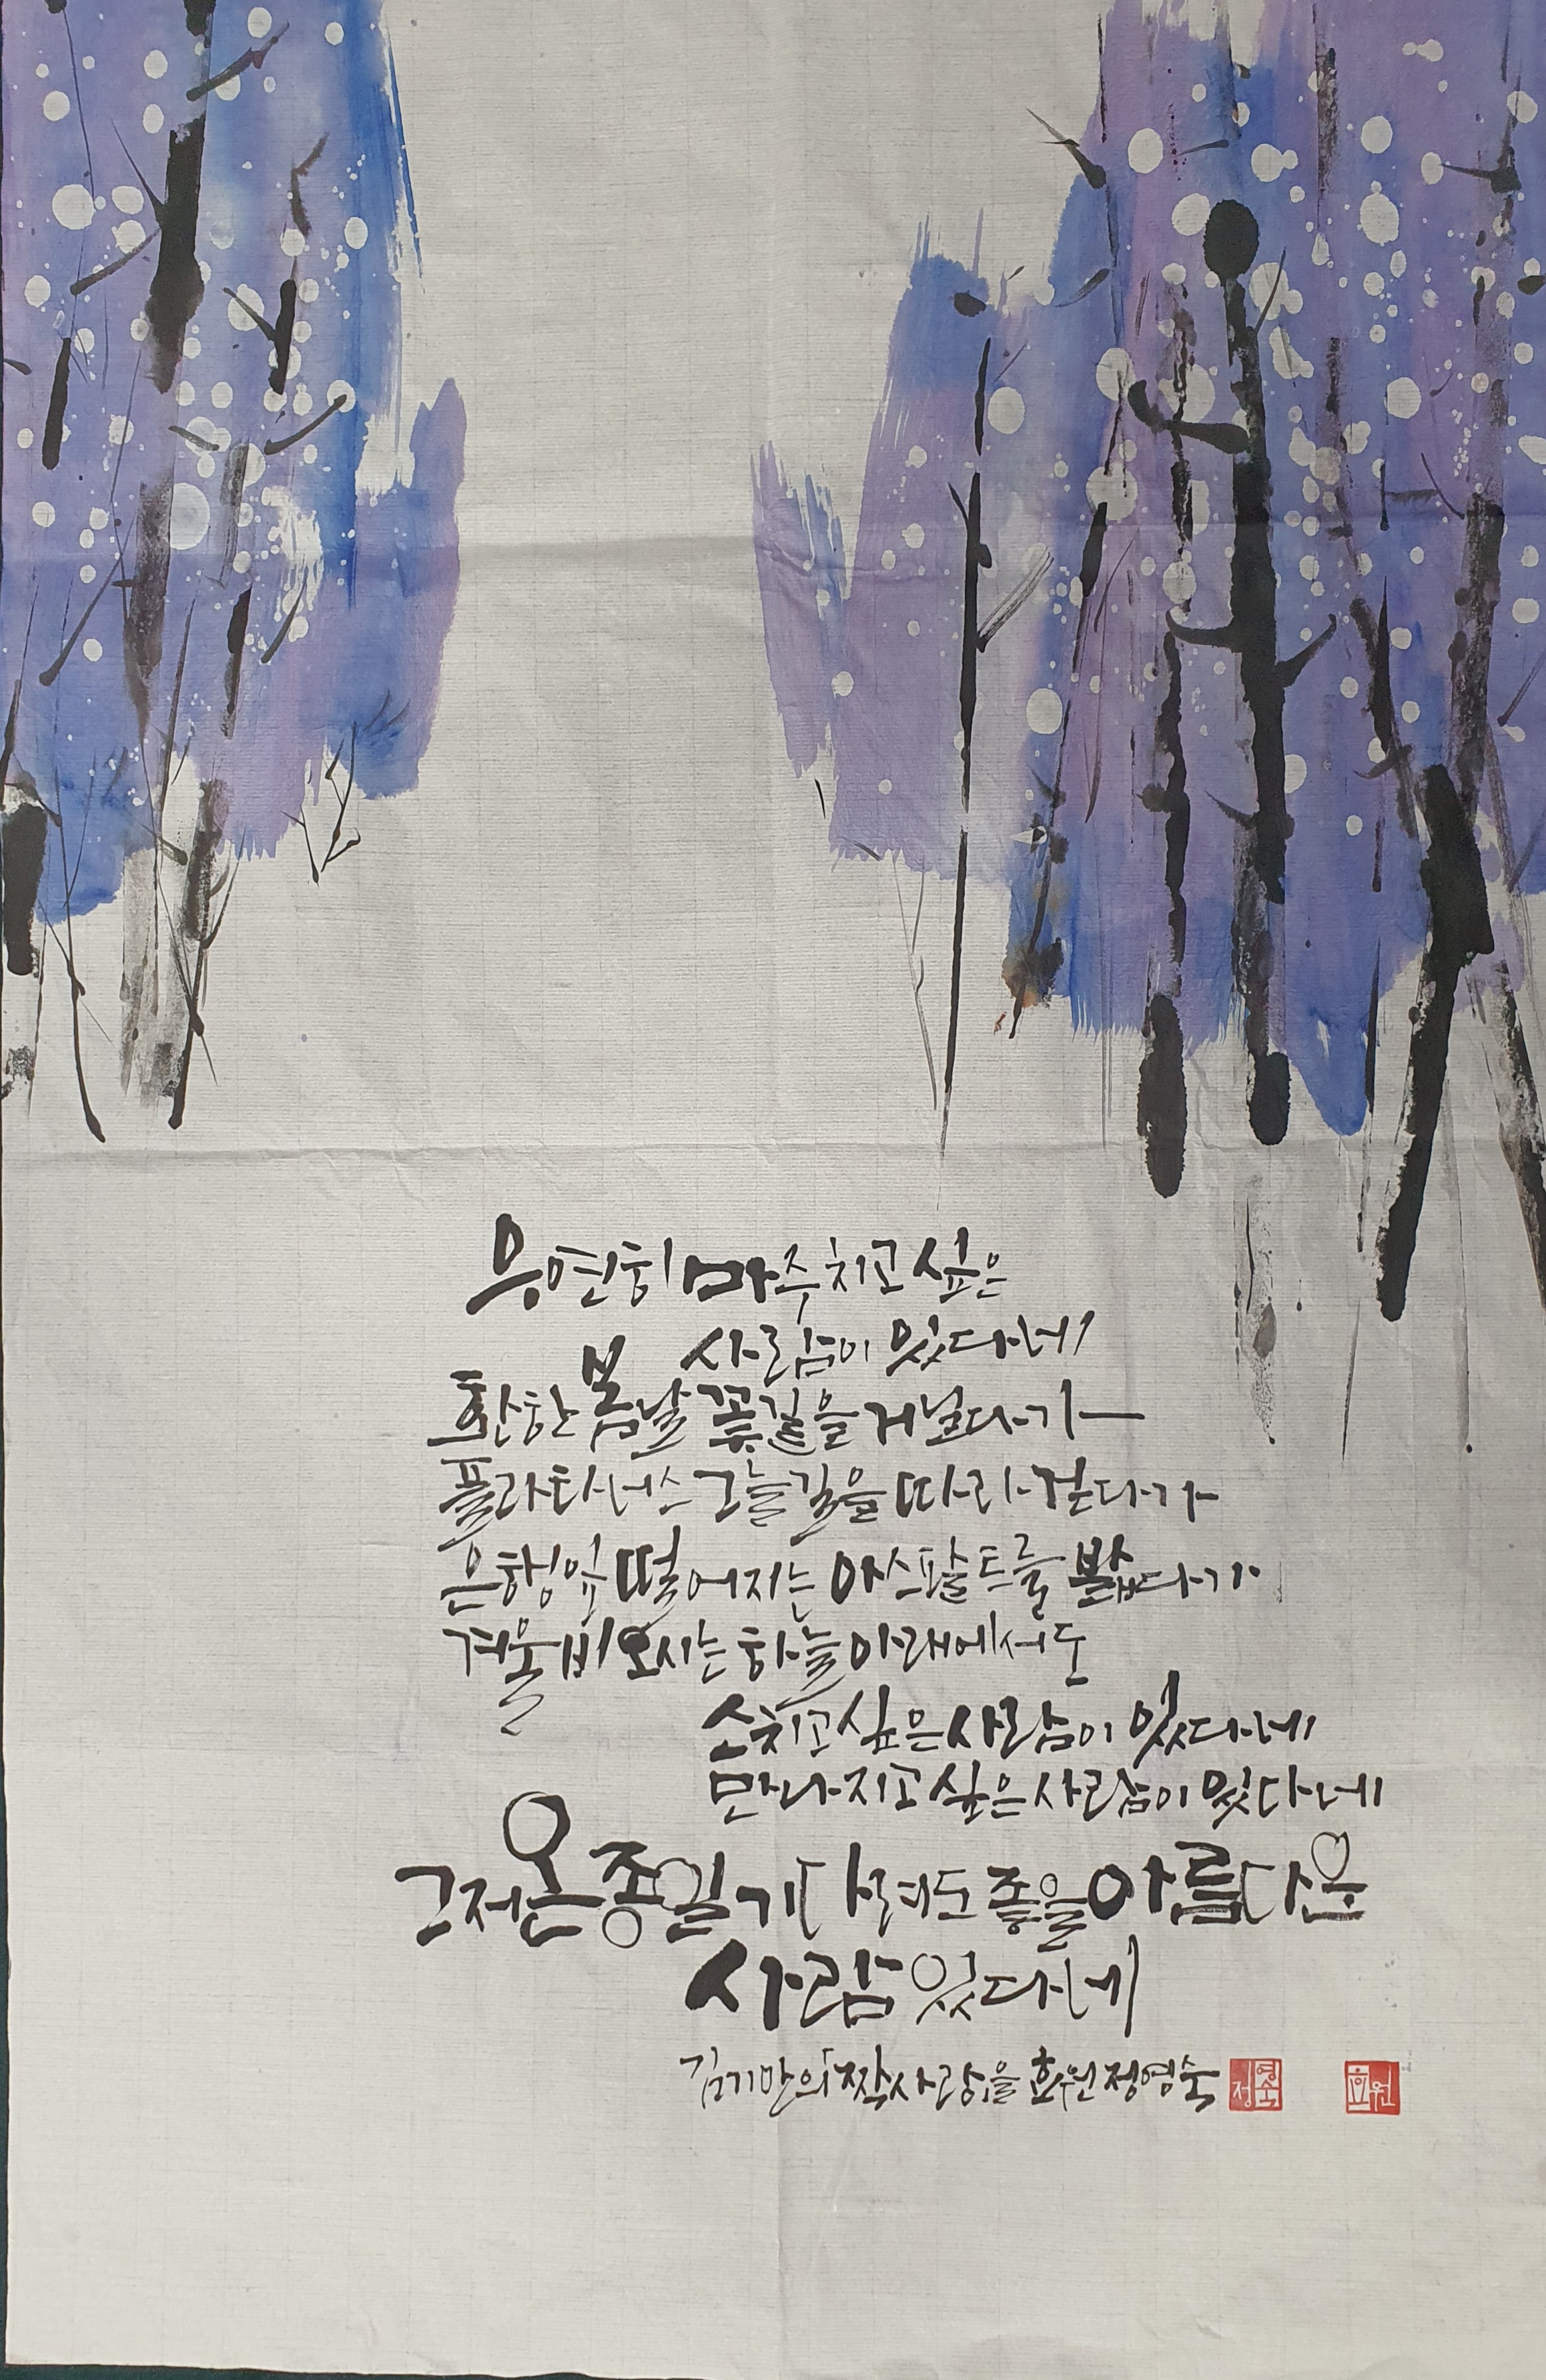 우연히 마주치고 싶은
사람이 있다네
환한 봄날 꽃길을 거닐다가
플라타너스 그늘길을 따라 걷다가
은행잎 떨어지는 아스팔트를 밟다가
겨울비 오시는 하늘 아래에서도
스치고 싶은 사람이 있다네
만나지고 싶은 사람이 있다네
그저 온종일 기다려도 좋을 아름다운
사람 있다네
김기만의 짝사랑을 효원 정영숙
정영숙
효원